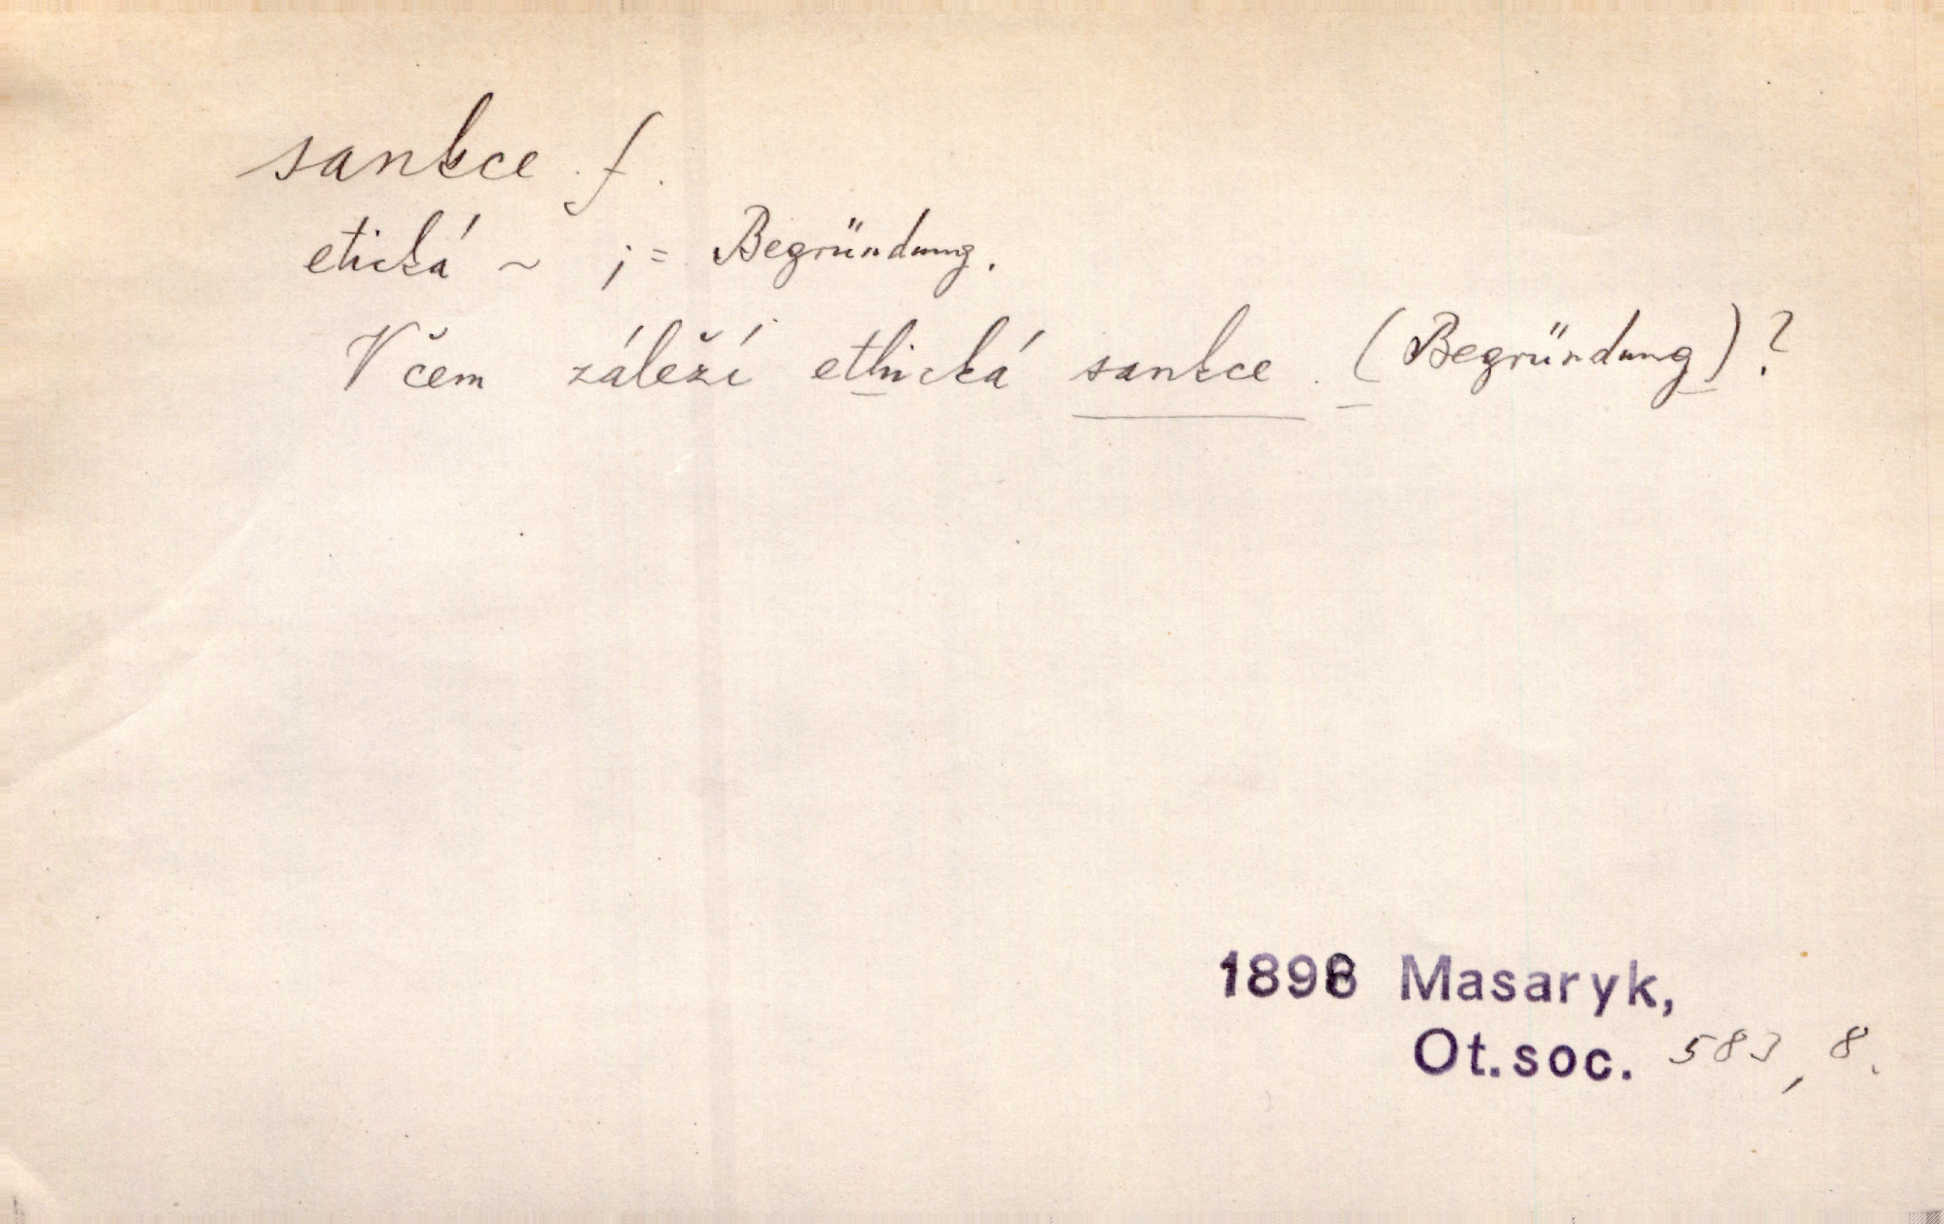 sankce f.
etická ~ ; = Begründung.
V čem záleží ethická sankce (Begründung)?
1898 Masaryk,
Ot. soc. 583, 8.